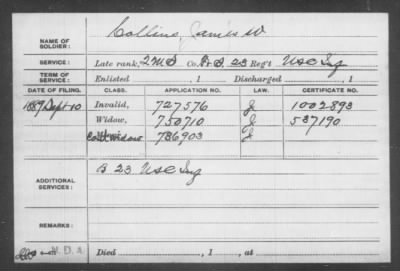 NAME OF SOLDIER: Collins, James W.
SERVICE: Late rank, 2 M S Co. B, 23 Reg't U S C Inf
TERM OF SERVICE: Enlisted , 1 Discharged , 1
DATE OF FILING. CLASS. APPLICATION NO. LAW. CERTIFICATE NO.
1889 Sept 10 Invalid, 727576 J 1002893
Widow, 750710 J 537190
Widow 736903 J
ADDITIONAL SERVICES: B 23 U S C Inf
REMARKS:
Died , 1 , at